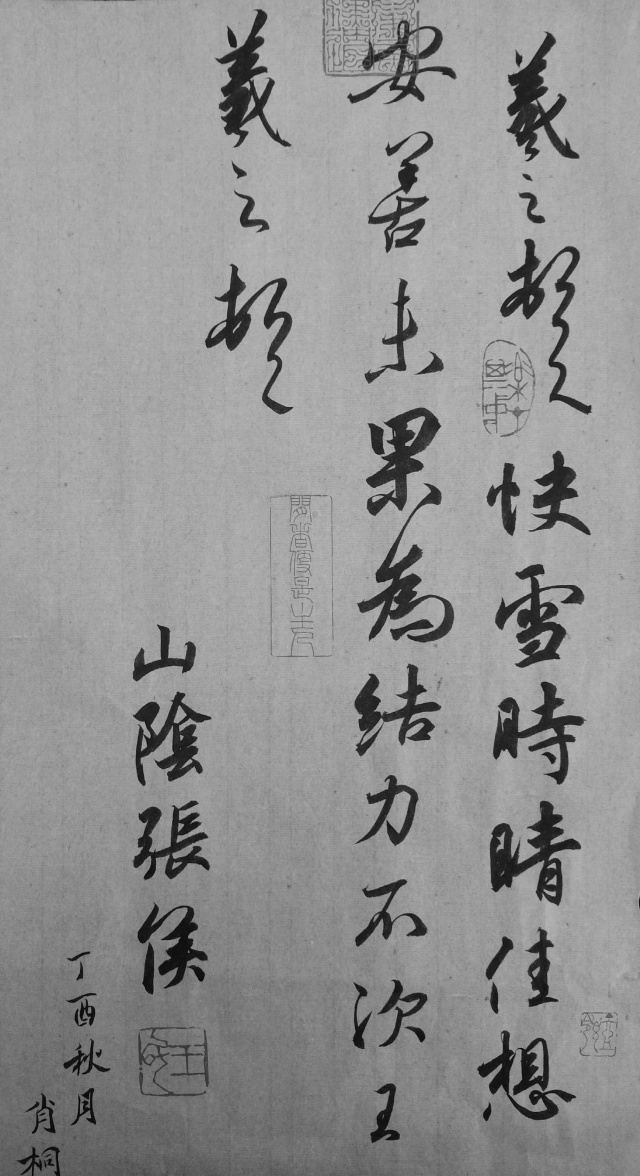 羲之頓首快雪時晴佳想
安善未果為結力不次王
羲之頓首
山陰張侯
丁酉秋月
肖桐